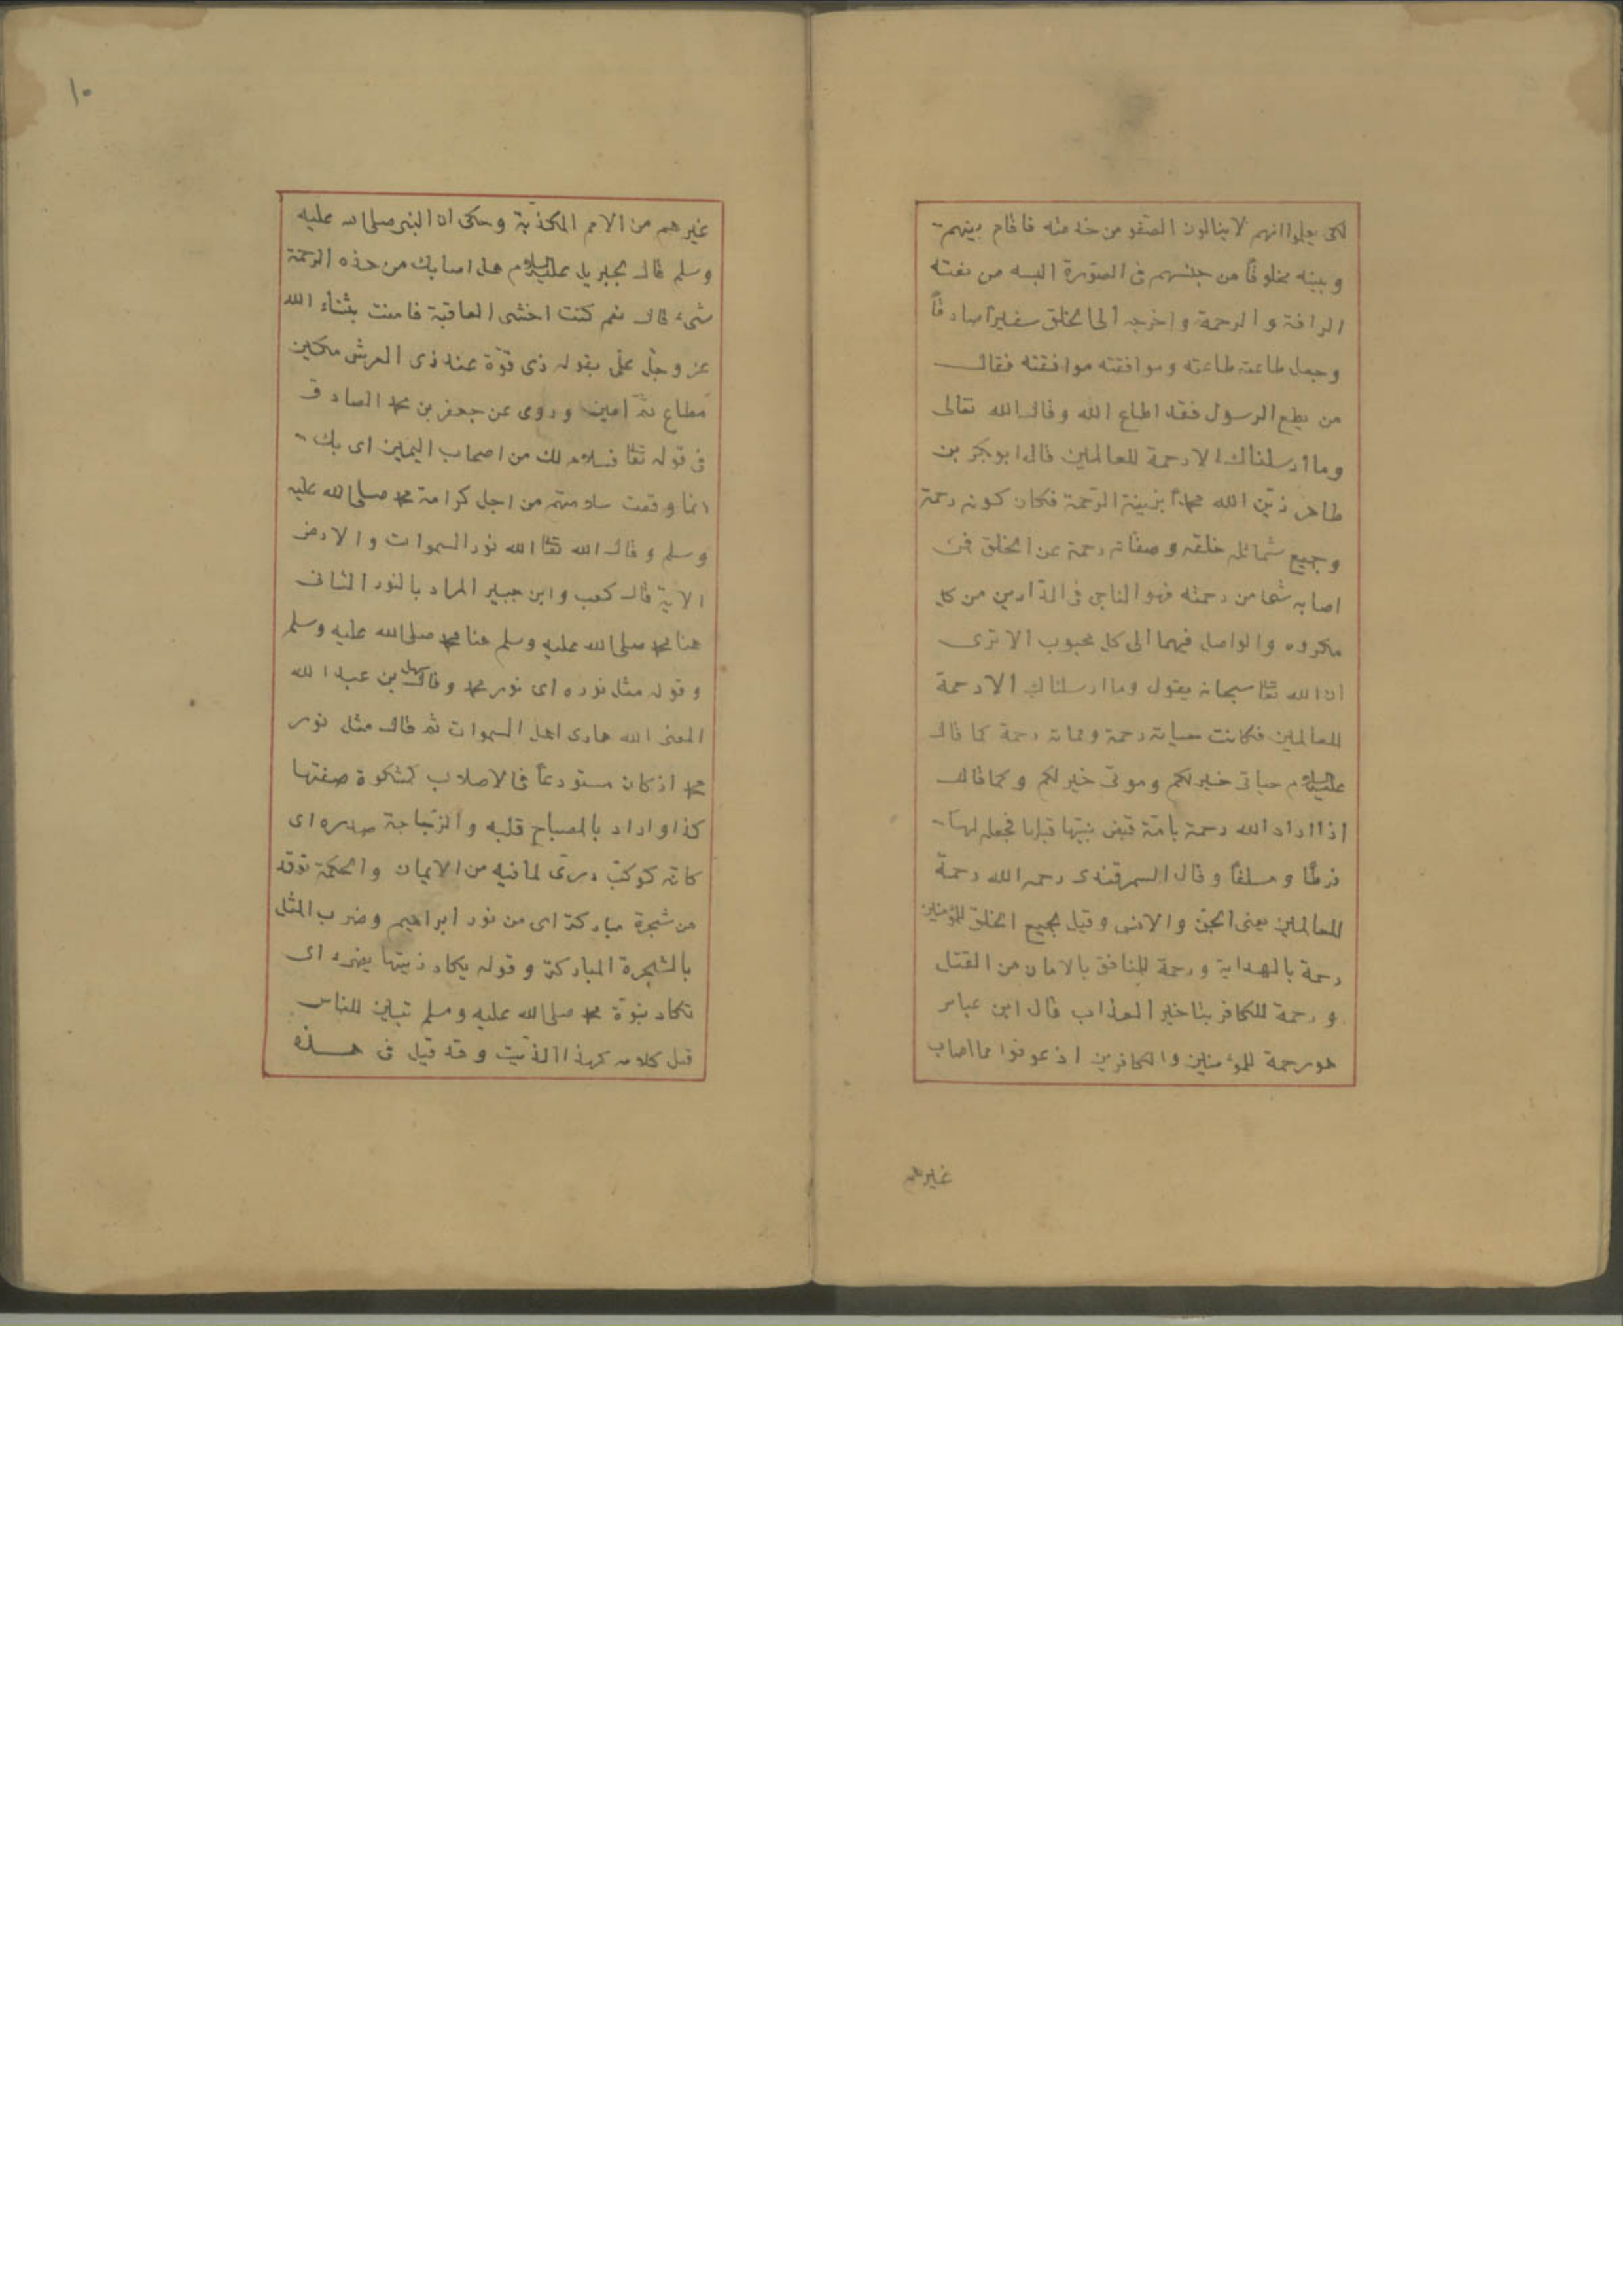 لكى يعلموا انهم لا ينالون الصفو من خدمته فاقام بينهم
وبينه مخلوقاً من جنسهم فى الصورة البسه من نعته
الرافة والرحمة واخرجه الى الخلق سفيراً صادقاً
وجعل طاعته طاعته وموافقته موافقته فقال
من يطع الرسول فقد اطاع الله وقال الله تعالى
وما ارسلناك الا رحمة للعالمين قال ابو بكر بن
طاهر زيّن الله محمداً بزينة الرّحمة فكان كونه رحمة
وجميع شمائله خلقه وصفاته رحمة عن الخلق فمن
اصابه شئ من رحمته فهو الناجى فى الدّارين من كل
مكروه والواصل فيهما الى كل محبوب الا ترى
ان الله تعا سبحانه يقول وما ارسلناك الا رحمة
للعالمين فكانت حياته رحمة ومماته رحمة كما قال
عليه السلام حياتى خير لكم وموتى خير لكم وكما قال
اذا اراد الله رحمة بامّة قبض نبيّها قبلها فجعله لها
فرطاً وسلفاً وقال السمرقندى رحمه الله رحمة
للعالمين يعنى الجن والانس وقيل لجميع الخلق للمؤمنين
رحمة بالهداية ورحمة للمنافق بالامان من القتل
ورحمة للكافر بتاخير العذاب قال ابن عباس
هو رحمة للمؤمنين والكافرين اذ عوفوا مما اصاب
غيرهم
١٠
غيرهم من الامم المكذّبة وحكى ان النبى صلى الله عليه
وسلم قال لجبريل عليه السلام هل اصابك من هذه الرحمة
شىء قال نعم كنت اخشى العاقبة فامنت بثناء الله
عز وجلّ علىّ بقوله ذى قوّة عند ذى العرش مكين
مطاع ثمّ امين وروى عن جعفر بن محمد الصادق
فى قوله تعا فسلام لك من اصحاب اليمين اى بك
انما وقعت سلامتهم من اجل كرامة محمد صلى الله عليه
وسلم وقال الله تعا الله نور السموات والارض
الاية قال كعب وابن جبير المراد بالنور الثانى
هنا محمد صلى الله عليه وسلم هنا محمد صلى الله عليه وسلم
وقوله مثل نوره اى نور محمد وقال سهل بن عبد الله
المعنى الله هادى اهل السموات ثم قال مثل نور
محمد اذ كان مستودعاً فى الاصلاب كمشكوة صفتها
كذا واراد بالمصباح قلبه والزّجاجة صدره اى
كانّه كوكب درى لما فيه من الايمان والحكمة توقد
من شجرة مباركة اى من نور ابراهيم وضرب المثل
بالشجرة المباركة وقوله يكاد زيتها يضىء اى
تكاد نبوّة محمد صلى الله عليه وسلم تبين للناس
قبل كلامه كهذا الزّيت وقد قيل فى هذه